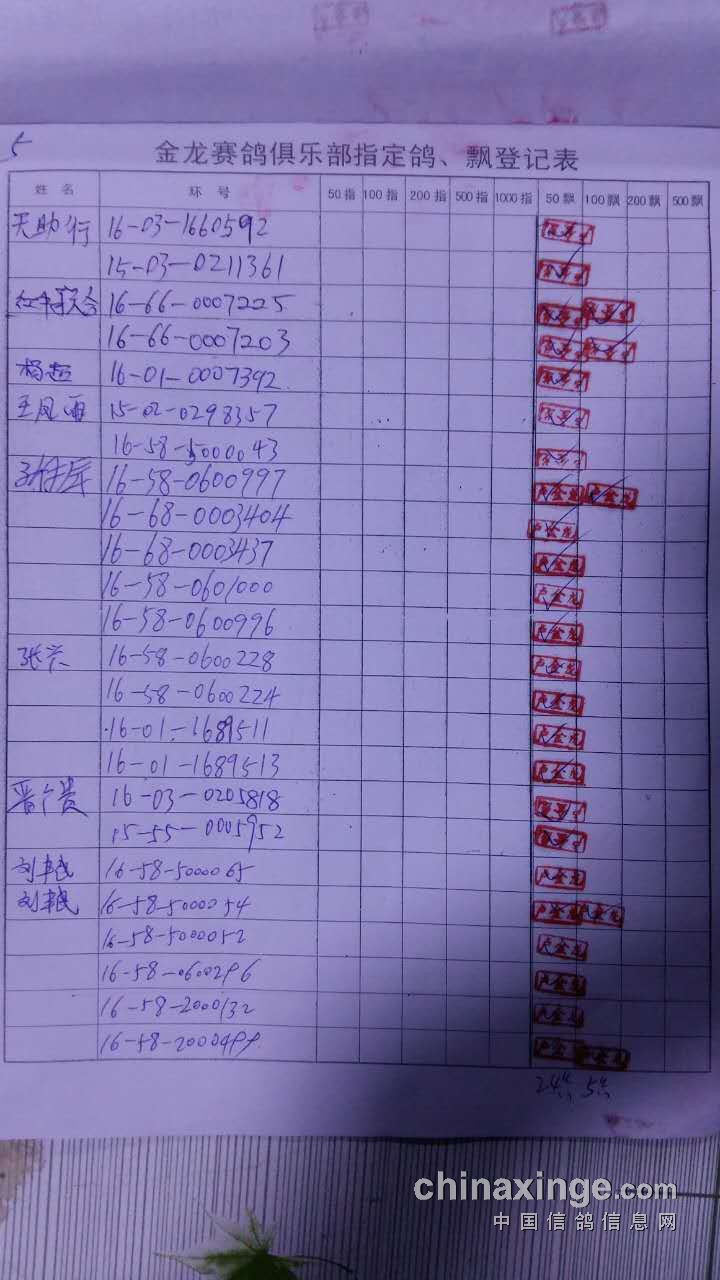 5
金龙赛鸽俱乐部指定鸽、飘登记表
姓名 环号 50指 100指 200指 500指 1000指 50飘 100飘 200飘 500飘
天助行 16-03-1660592
15-03-0211361
16-66-0007225
16-66-0007203
杨超 16-01-0007392
王凤雨 15-02-0298357
16-58-5000043
16-58-0600997 卢金龙 卢金龙
16-68-0003404 卢金龙
16-68-0003437 卢金龙
16-58-0601000 卢金龙
16-58-0600996 卢金龙
张兴 16-58-0600228 卢金龙
16-58-0600224 卢金龙
16-01-1689511 卢金龙
16-01-1689513 卢金龙
16-03-0205818
15-55-0005952
16-58-5000065 卢金龙
16-58-5000054 卢金龙 卢金龙
16-58-5000052 卢金龙
16-58-0600296 卢金龙
16-58-2000132 卢金龙
16-58-2000499 卢金龙 卢金龙
24 5
chinaxinge.com
中国信鸽信息网